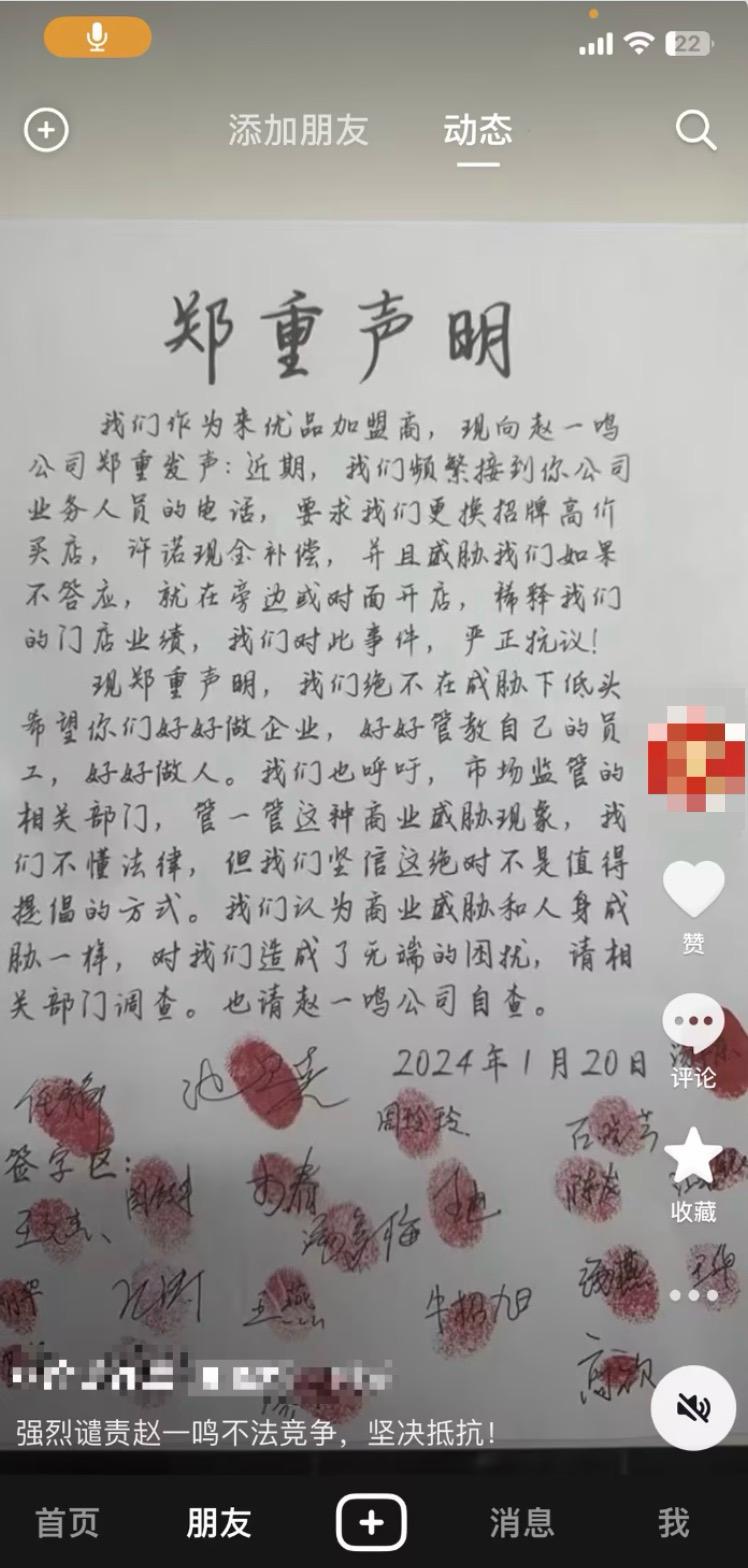 22
添加朋友 动态
郑重声明
我们作为来优品加盟商，现向赵一鸣
公司郑重发声：近期，我们频繁接到你公司
业务人员的电话，要求我们更换招牌高价
买店，许诺现金补偿，并且威胁我们如果
不答应，就在旁边或对面开店，稀释我们
的门店业绩，我们对此事件，严正抗议！
现郑重声明，我们绝不在威胁下低头
希望你们好好做企业，好好管教自己的员
工，好好做人。我们也呼吁，市场监管的
相关部门，管一管这种商业威胁现象，我
们不懂法律，但我们坚信这绝对不是值得
提倡的方式。我们认为商业威胁和人身威
胁一样，对我们造成了无端的困扰，请相
关部门调查。也请赵一鸣公司自查。
赞
2024年1月20日
评论
周玲玲
签字区：
收藏
王燕
强烈谴责赵一鸣不法竞争，坚决抵抗！
首页 朋友 消息 我